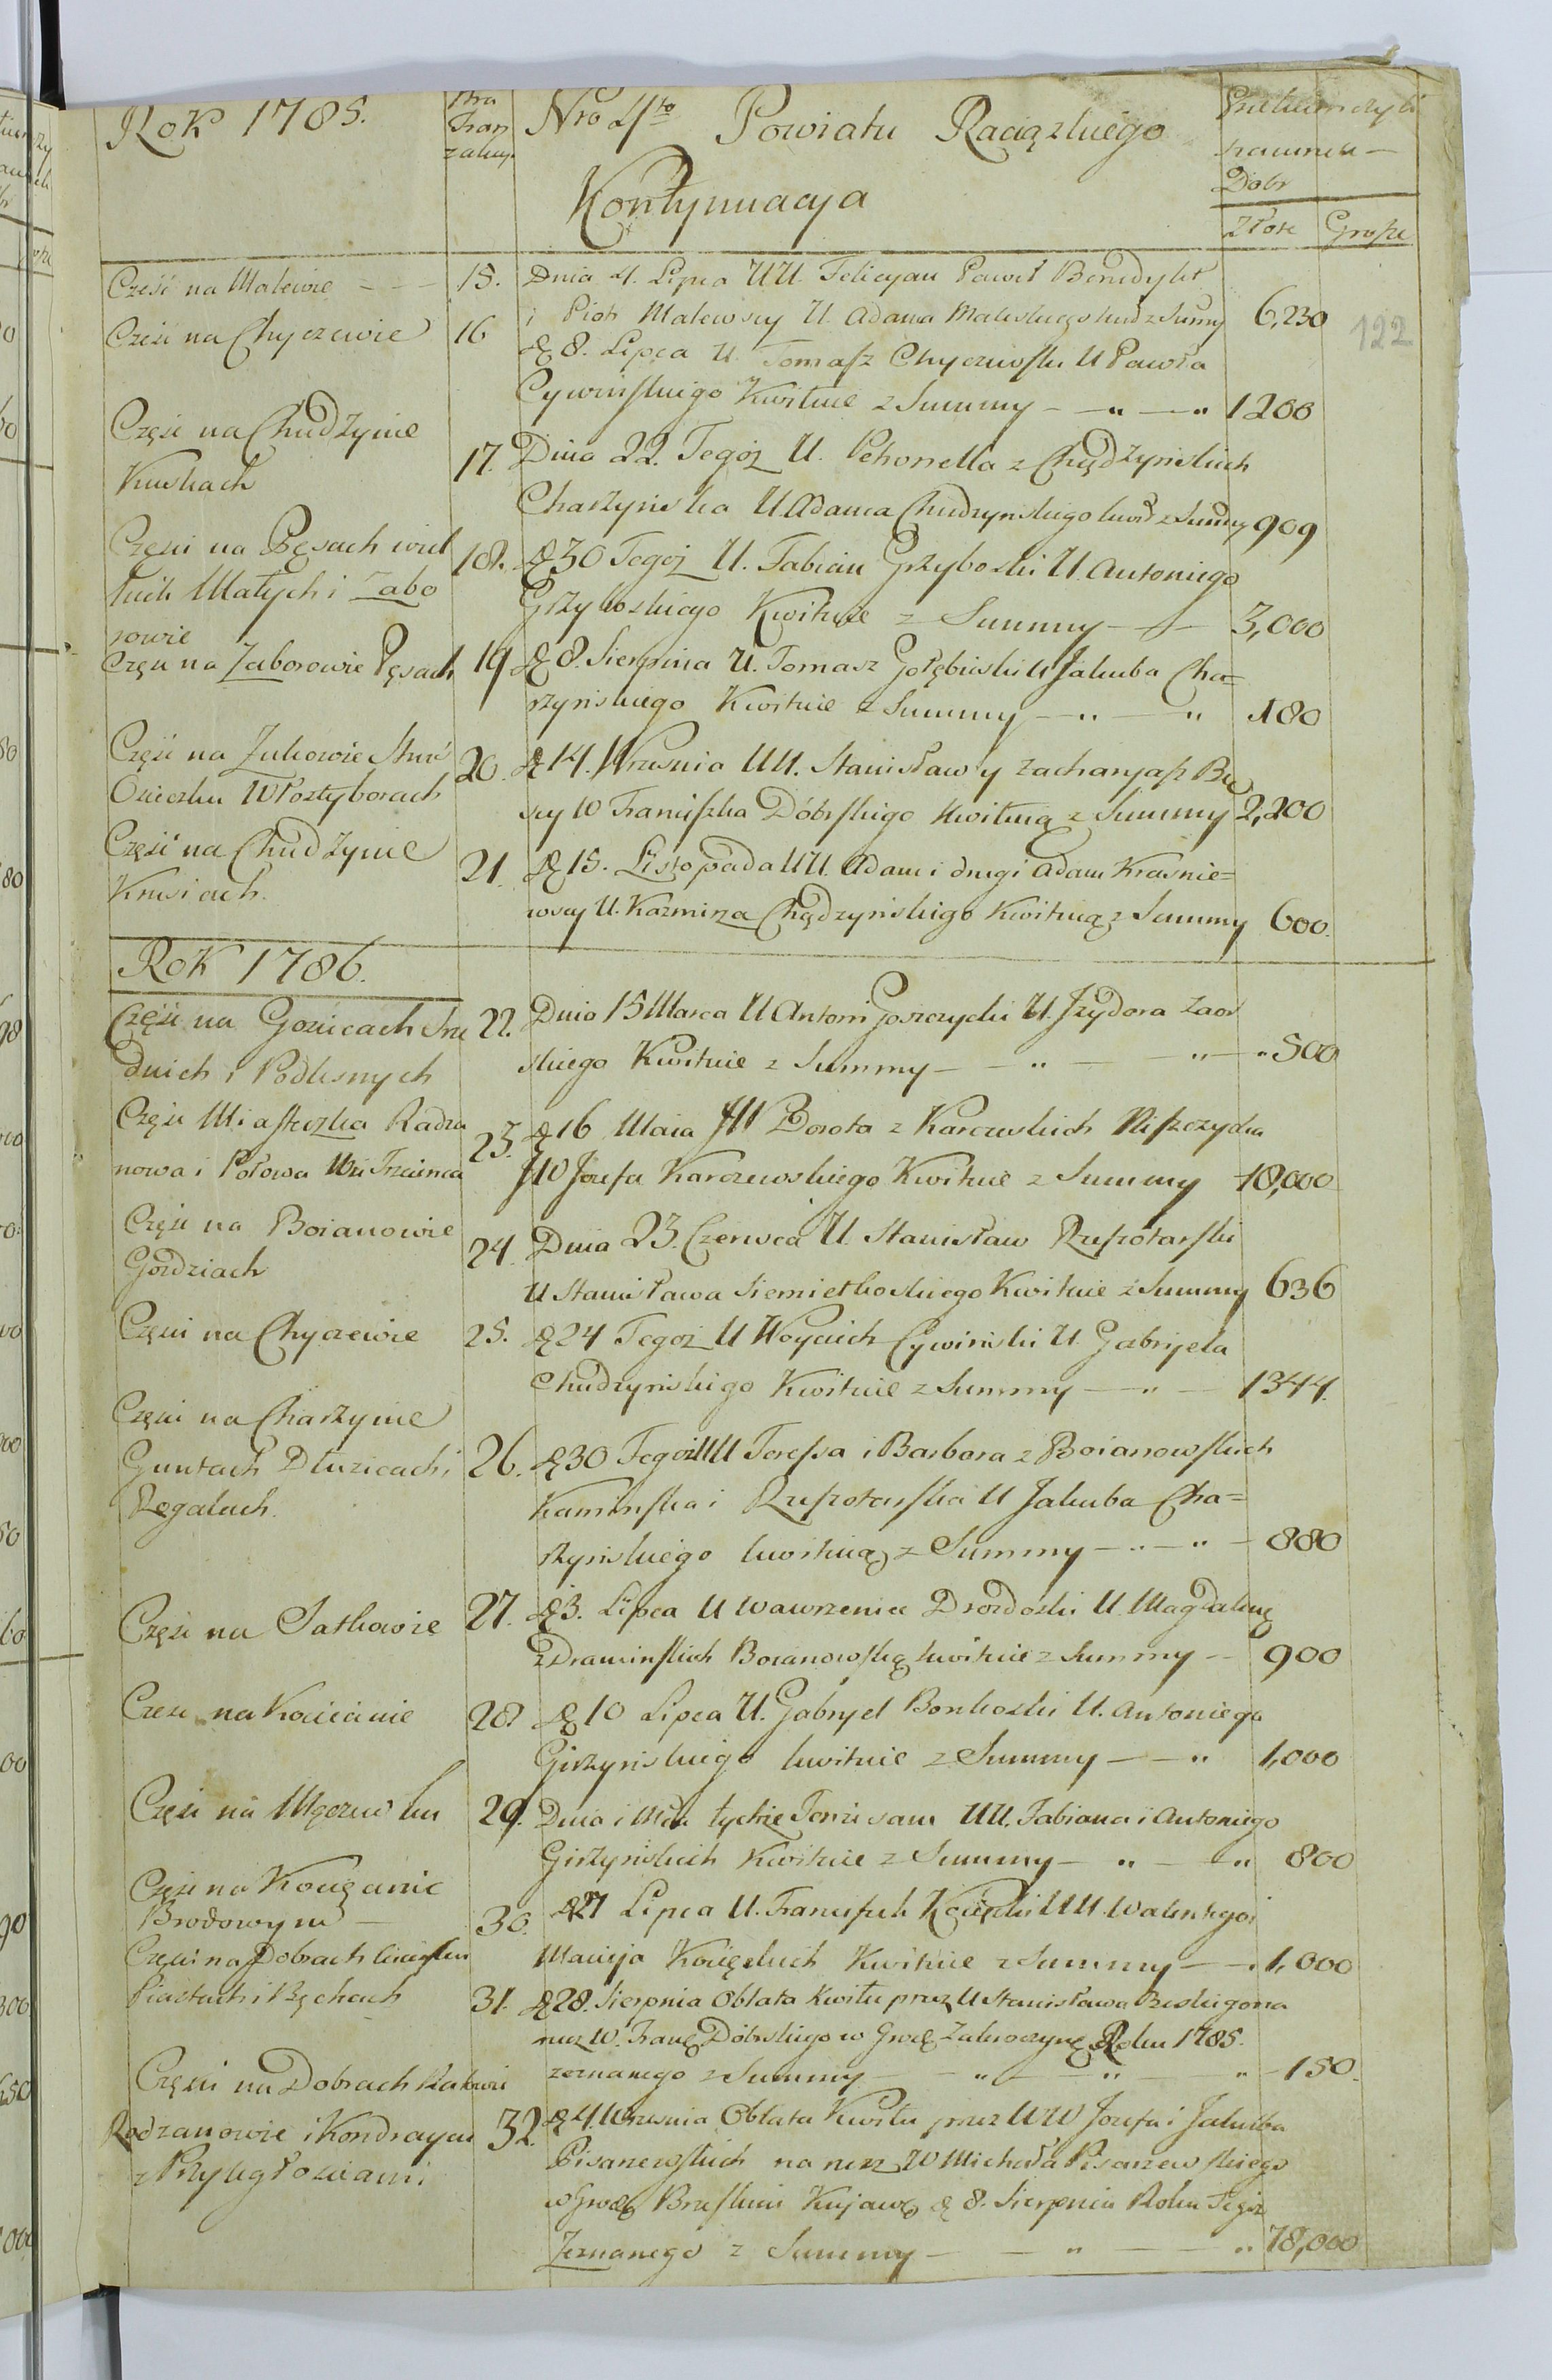 Rok 1785.
Nro 4to Powiatu Raciązkiego
Kontynuacya
szacunek
Dobr
Złote Grosze
122
Cześć na Malewie — — 15. Dnia 4. Lipca UU. Felicyan Paweł Benedykt
i Piotr Malewscy U. Adama Maleskiego kwit z Sumy 6,230
Cześć na Chyczewie 16 D 8. Lipca U. Tomasz Chyczewski U Pawła
Cywinskiego Kwituie z Summy — „ — „ 1200
Częsc na Chudzynie
Kuskach 17. Dnia 22. Tegoż U. Petronella z Chądzynskich
Charzynska U. Adama Chudzynskiego kwit z Sumy 909
Częsci na Pęsach wiel
kich Małych i Zabo
rowie 18. D 30 Tegoż U. Fabian Grzyboski U. Antoniego
Grzyboskiego Kwituie z Summy — 3,000
Częsc na Zaborowie Pęsach 19 D 8. Sierpnia U. Tomasz Gołębieski U Jakuba Cha=
rzynskiego Kwituie z Summy — „ — „ 180
Częsć na Żukowie
Włostyborach 20. D 14. Wrzesnia UU. Stanisław y Zacharyasz
W Franciszka Dóbrskiego kwituią z Summy 2,200
Częsć na Chudzynie
Krusiach. 21. D 15. Listopada UU. Adam i drugi Adam Krasnie=
wscy U. Kazmirza Chądzynskiego Kwituią z Summy 600.
Rok 1786.
Częsc na Gościcach Sre
dnich i Podlesnych 22. Dnia 15 Marca U Antoni Goszczycki U. Jzydora Zaor
skiego Kwituie z Summy — „ — „ — „ 500
Częsc Miasteczka Radza
nowa i Połowa Wsi Trzcinca 23. D 16 Maia JW Dorota z Karczewskich Niszczycka
JW Jozefa Karczewskiego Kwituie z Summy 18,000
Częsc na Boianowie
Gozdziach 24. Dnia 23. Czerwca U. Stanisław Rzeszotarski
U Stanisława Siemiątkoskiego Kwituie z Summy 636
Częsci na Chyczewie 25. D 24 Tegoż U Woyciech Cywinski U. Gabryela
Chudzynskiego Kwituie z Summy — „ — 1344.
Częsci na Charzynie
Guntach Dłuzicach i
Rogalach. 26. D 30 Tegoż UU Teressa i Barbara z Boianowskich
Kaminska i Rzeszotarska U Jakuba Cha=
rzynskiego kwituią z Summy — „ — „ — 880
Częsc na Satkowie 27. D 3. Lipca U Wawrzeniec Drozdoski U. Magdalenę
z Draminskich Boianowską kwituie z Summy — 900
Czesc na Kocięcinie 28. D 10 Lipca U. Gabryel Bonkoski U. Antoniego
Girzynskiego kwituie z Summy — — „ 1,000
Częsc na Mączewku 29. Dnia i Mca tychże Tenże sam UU. Fabiana i Antoniego
Girzynskich Kwituie z Summy — „ — „ 800
Częsc na Kocięcinie
Brodowym — 30. D 27 Lipca U. Franciszek Kocięcki UU. Walentego i
Macieja Kocięckich Kwituie z Summy — 1,000
Częsci na Dobrach
Piastach i Bąchach 31. D 28. Sierpnia Oblata Kwitu przez U Stanisława na
rzecz W. Franc Dóbrskiego w Grod Zakroczyns Roku 1785.
zeznanego z Summy — „ — „ — „ 150.
Częsci na Dobrach
Radzanowie i Kondrayec
z Przyległosciami 32. D 4. Wrzesnia Oblata Kwitu przez WW Jozefa i Jakuba
Pisarzewskich na rzecz W Michała Pisarzewskiego
w Grodz Brzeskim Kujaws D 8. Sierpnia Roku Tegoż
Zeznanego z Summy — „ — „ 78,000